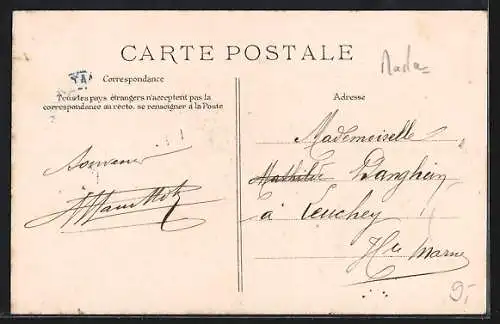 CARTE POSTALE
Correspondance
Tous les pays étrangers n'acceptent pas la
correspondance au recto, se renseigner à la Poste
Adresse
Mademoiselle
Mathilde
à Leuchey
Hte Marne
9.-